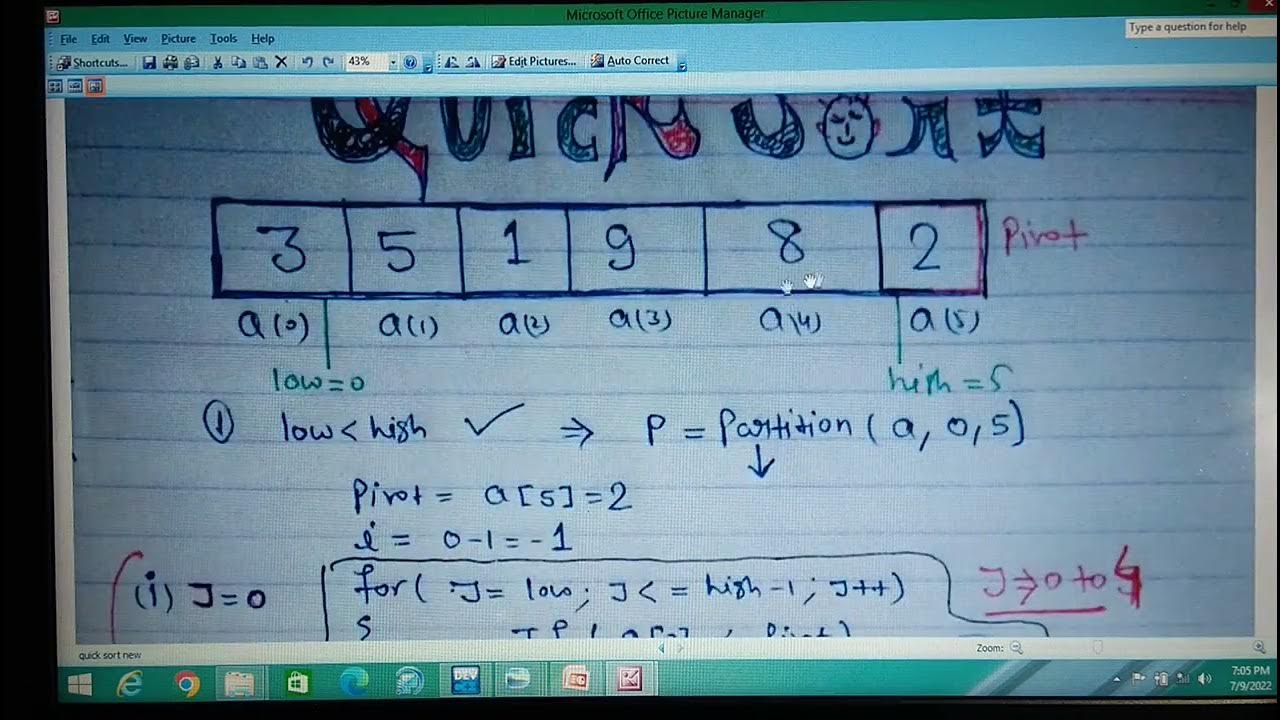 Microsoft Office Picture Manager
File Edit View Picture Tools Help
Type a question for help
Shortcuts... 43% Edit Pictures... Auto Correct
Quick Sort
3 5 1 9 8 2 Pivot
a(0) a(1) a(2) a(3) a(4) a(5)
low=0 high=5
① low<high ✓ ⇒ P = Partition(a, 0,5)
↓
Pivot = a[5]=2
i = 0-1=-1
(i) J=0 for( J= low; J<= high-1; J++) J⇒0 to 4
quick sort new
Zoom:
DEV
7:05 PM
7/9/2022